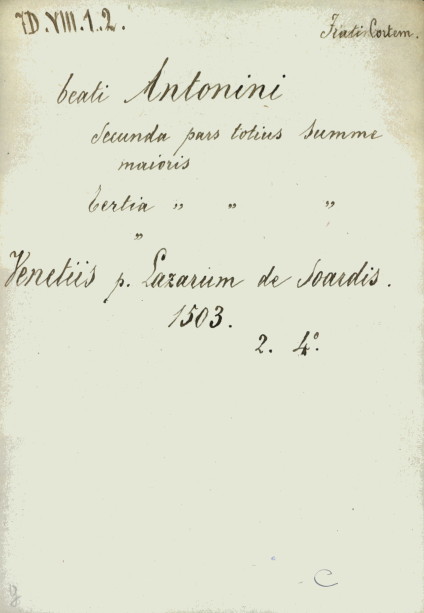 7D.VIII.1.2.
Frati Cortem.
beati Antonini
Secunda pars totius Summe
maioris
Tertia " " "
"
Venetiis p. Lazarum de Soardis.
1503.
2. 4°.
C